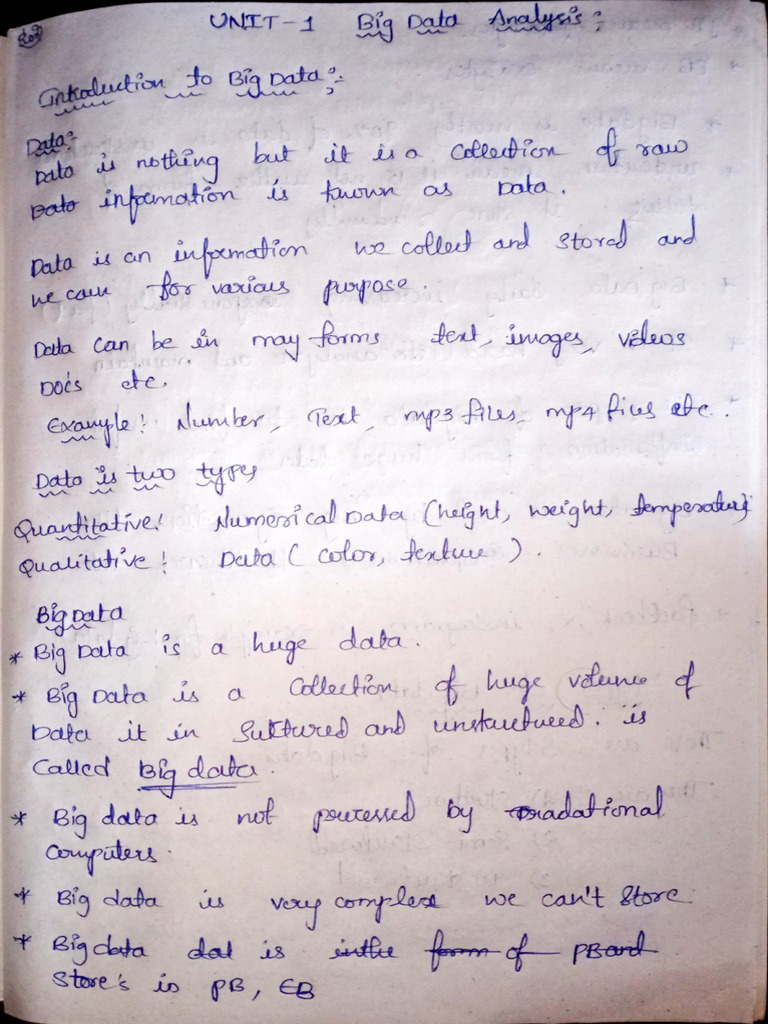 UNIT-1 Big Data Analysis:
Introduction to Big Data:-
Data:-
Data is nothing but it is a Collection of raw
Data information is known as Data.
Data is an information we collect and Stored and
we can for various purpose.
Data can be in may forms text, images, videos
Docs etc.
Example! Number, Text, mp3 files, mp4 files etc.
Data is two types
Quantitative! Numerical Data (height, weight, temperature)
Qualitative! Data ( color, texture ).
Big Data
* Big Data is a huge data.
* Big Data is a Collection of huge volume of
Data it in Suktured and unstuctured. is
Called Big data.
* Big data is not processed by tradational
Computers.
* Big data is very complex we can't Store.
* Big data dat is inthe form of PB and
Store's in PB, EB